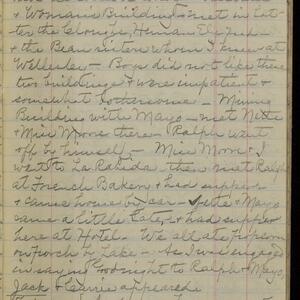 & Woman's Building - met in lat-
ter the Cloughs,
& the Bean sisters whom I knew at
Wellesley - Boys did not like these
two buildings & were impatient &
somewhat bothersome - Mining
Building with Mayo - met Nettie
& Miss Moore there - Ralph went
off by himself - Miss Moore & I
went to La Rabida - then met Ralph
at French Bakery & had supper
& came home by car - Nettie & Mayo
came a little later & had supper
here at Hotel. We all ate popcorn
on porch by Lake - As I was engaged
in saying Good night to Ralph & Mayo,
Jack & Carrie appeared.